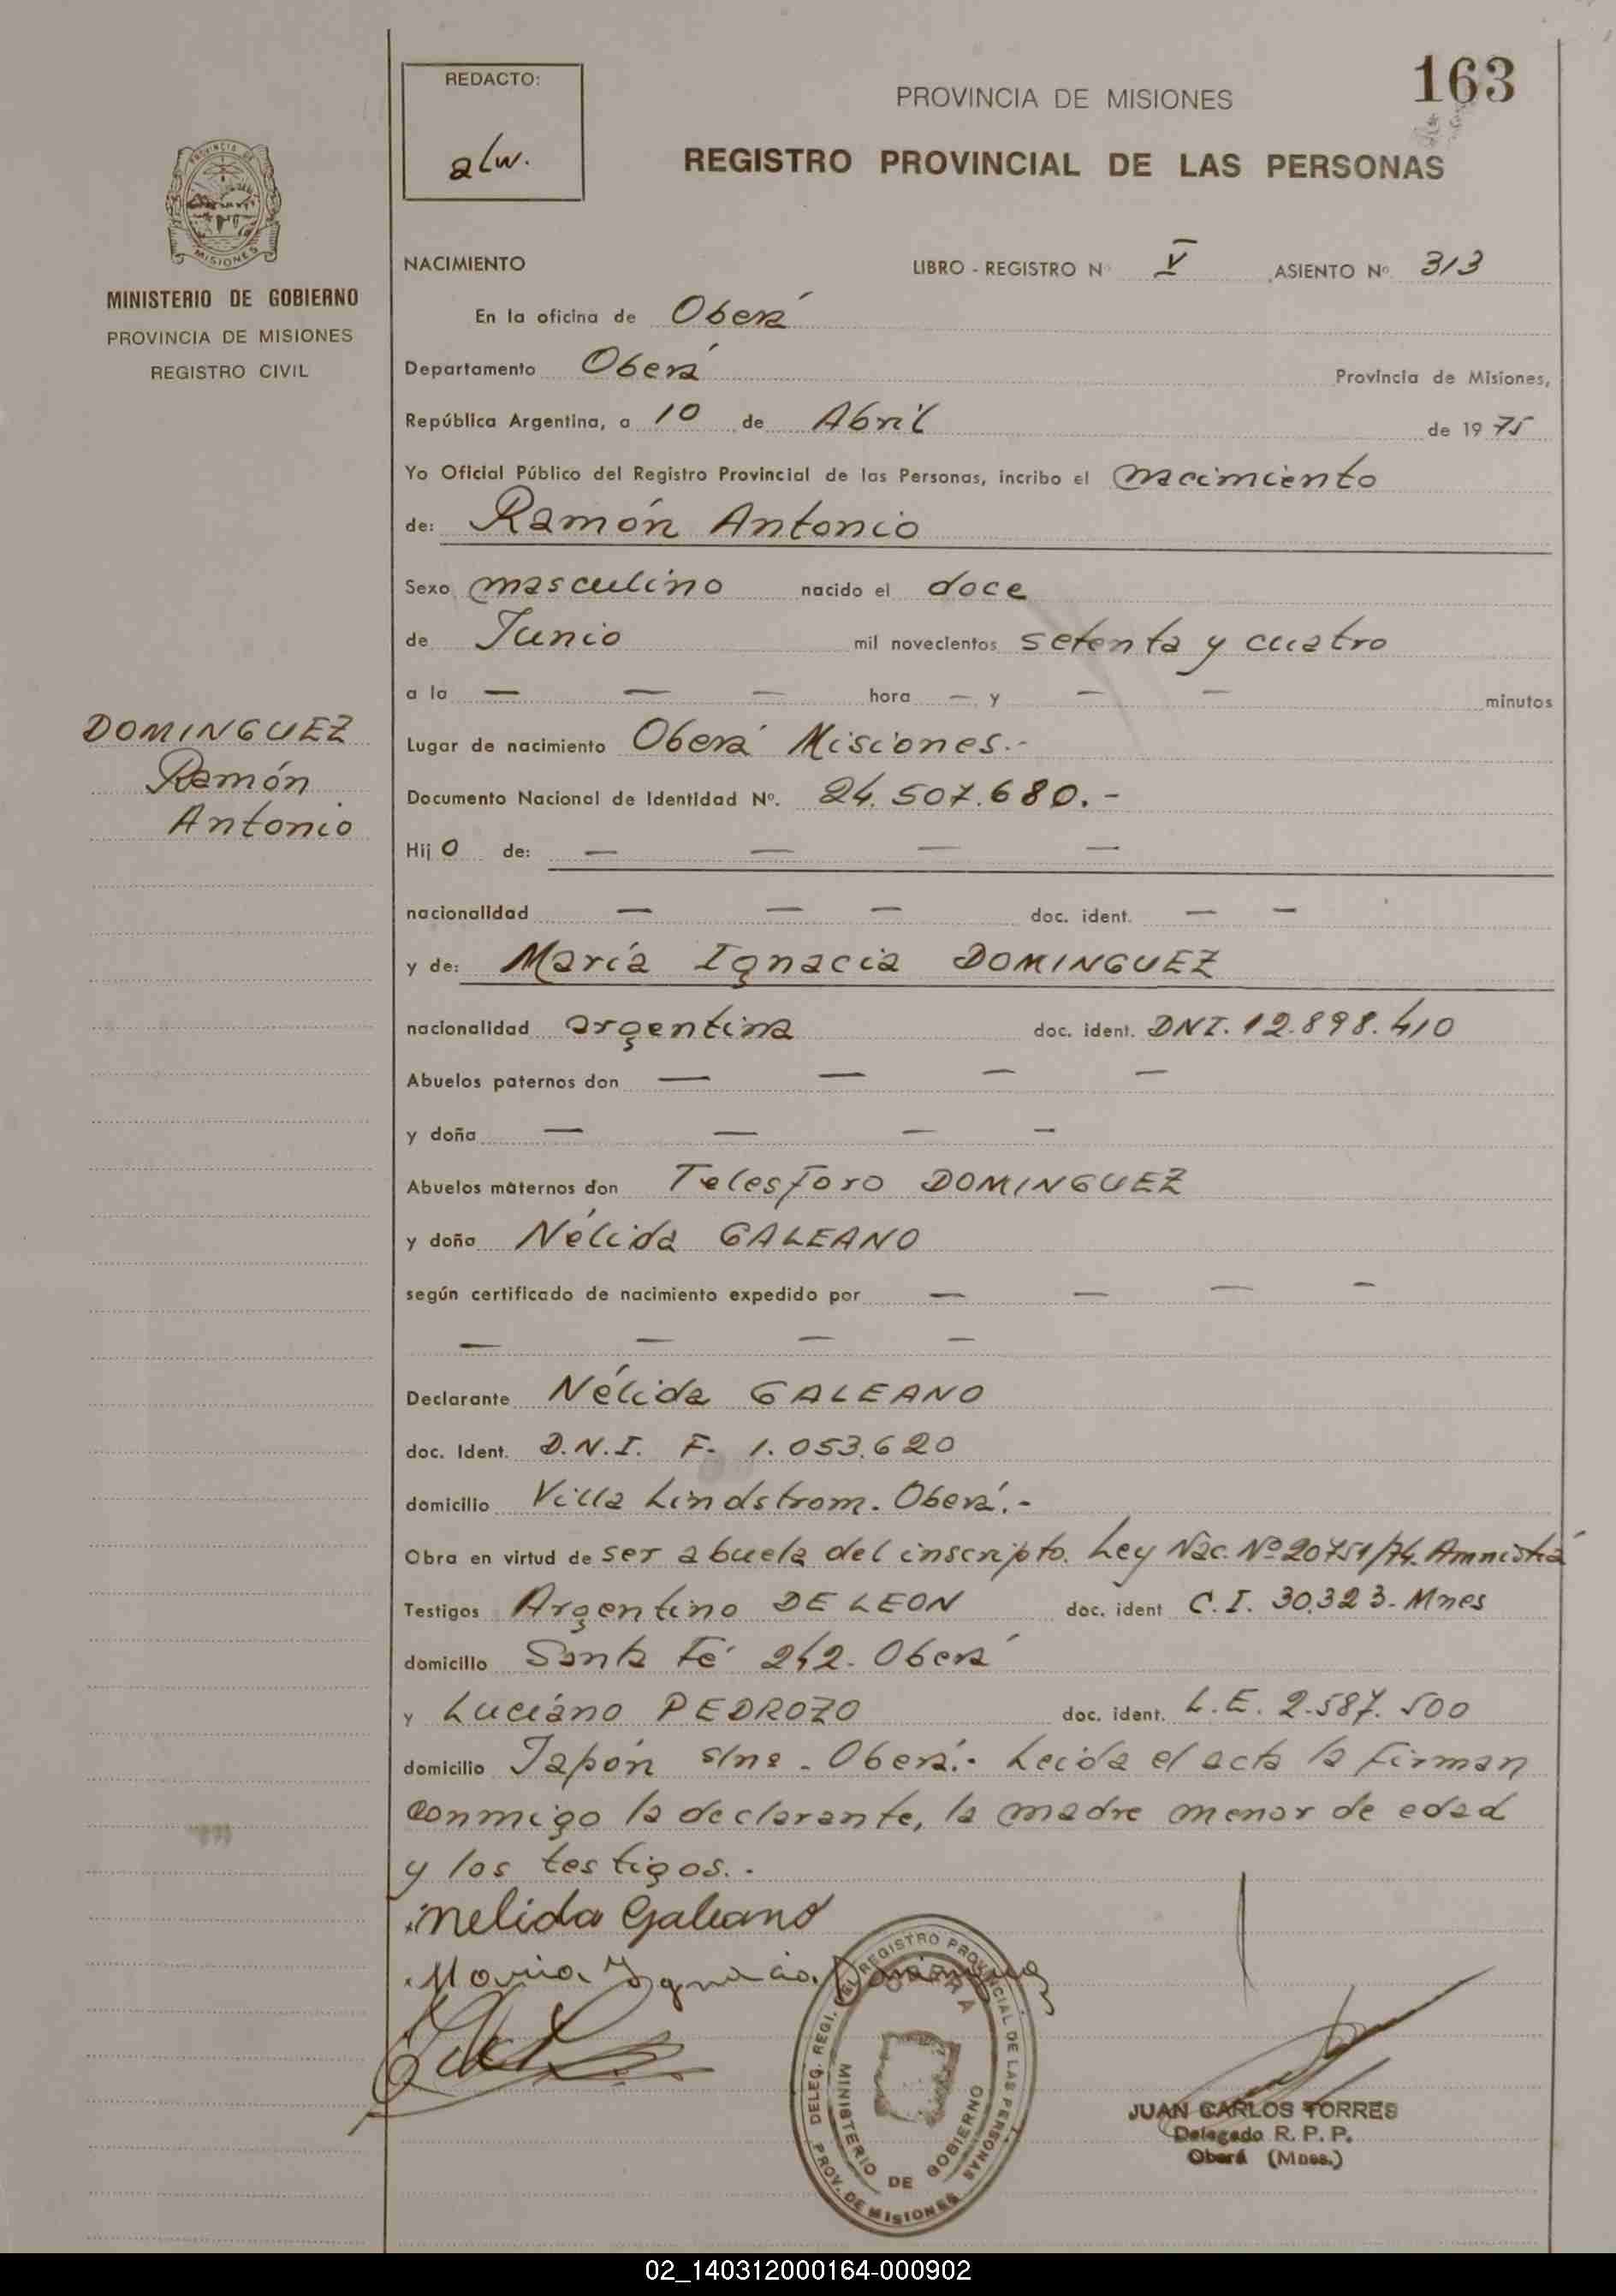 163
REDACTO:
alw.
PROVINCIA DE MISIONES
REGISTRO PROVINCIAL DE LAS PERSONAS
PROVINCIA DE
MISIONES
MINISTERIO DE GOBIERNO
PROVINCIA DE MISIONES
REGISTRO CIVIL
NACIMIENTO LIBRO - REGISTRO Nº V ASIENTO Nº 313
En la oficina de Oberá
Departamento Oberá Provincia de Misiones,
República Argentina, a 10 de Abril de 1975
Yo Oficial Público del Registro Provincial de las Personas, incribo el nacimiento
de: Ramón Antonio
Sexo masculino nacido el doce
de Junio mil novecientos setenta y cuatro
a la — — — hora — y — — minutos
DOMINGUEZ
Ramón
Antonio
Lugar de nacimiento Oberá Misiones.-
Documento Nacional de Identidad Nº. 24.507.680.-
Hijo de: — — — —
nacionalidad — — — doc. ident. — —
y de: María Ignacia DOMINGUEZ
nacionalidad argentina doc. ident. DNI. 12.898.410
Abuelos paternos don — — — —
y doña — — — —
Abuelos maternos don Telesforo DOMINGUEZ
y doña Nélida GALEANO
según certificado de nacimiento expedido por — — — —
— — — —
Declarante Nélida GALEANO
doc. Ident. D.N.I. F. 1.053.620
domicilio Villa Lindstrom. Oberá.-
Obra en virtud de ser abuela del inscripto. Ley Nac. Nº 20751/74. Amnistía
Testigos Argentino DE LEON doc. ident C.I. 30.323. Mnes
domicilio Santa Fé 242. Oberá
y Luciano PEDROZO doc. ident. L.E. 2.587.500
domicilio Japón s/nº - Oberá.- Leída el acta la firman
conmigo la declarante, la madre menor de edad
y los testigos.-
nelida Galeano
Maria Ignacia Dominguez
DELEG. REGI. DEL REGISTRO PROVINCIAL DE LAS PERSONAS
OBERA
MINISTERIO DE GOBIERNO
PROV. DE MISIONES
JUAN CARLOS TORRES
Delegado R. P. P.
Oberá (Mnes.)
02_140312000164-000902